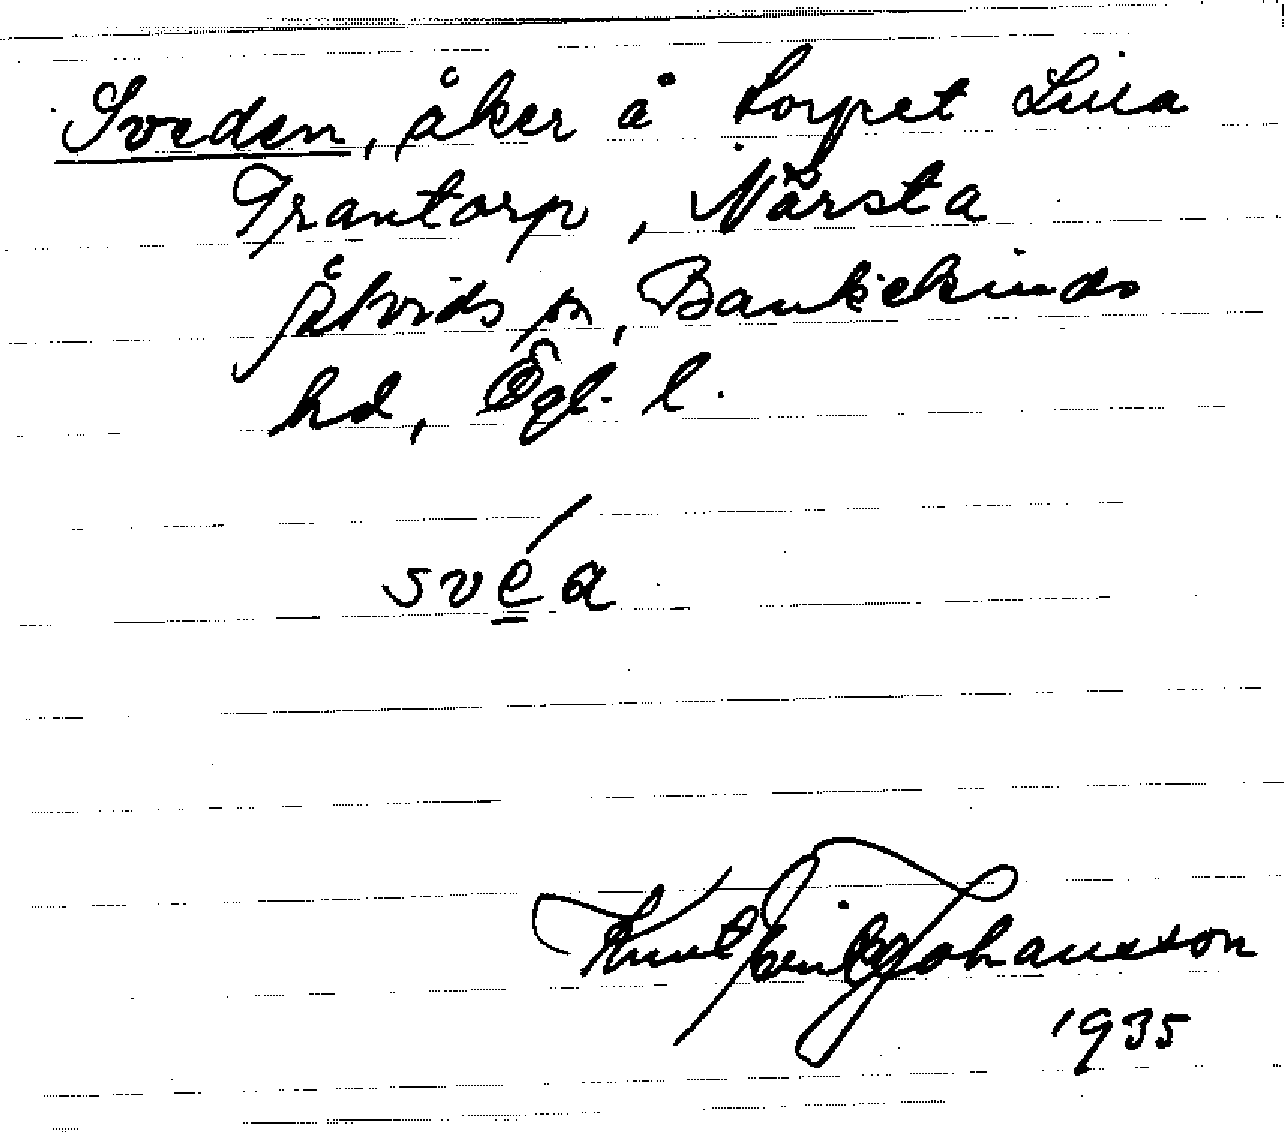 Sveden, åker å torpet Lilla
Trantorp, Närsta
Åtvids sn, Bankekinds
hd, Ögl. l.
svéa
Knut Johansson
1935